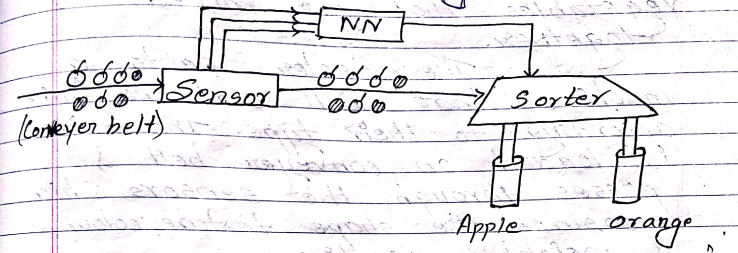 NN
Sensor
Sorter
(Conveyer belt)
Apple
orange